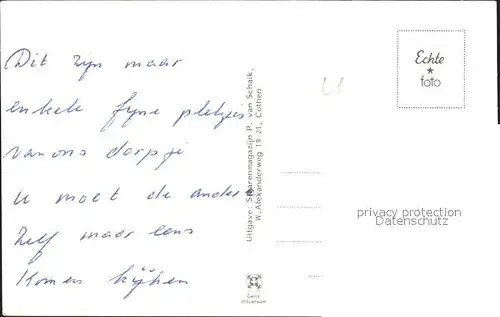 Dit zijn maar
enkele fijne plekjes
van ons dorpje
U moet de andere
zelf maar eens
komen kijken
Uitgave: Sigarenmagazijn P. van Schaik,
W. Alexanderweg 19-21, Cothen
Echte
foto
privacy protection
Datenschutz
hilversum